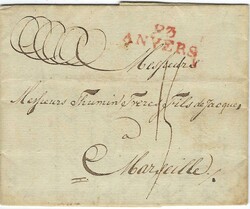 93
ANVERS
Messieurs
Messieurs Thumin Freres Fils de Jacques
à
Marseille.